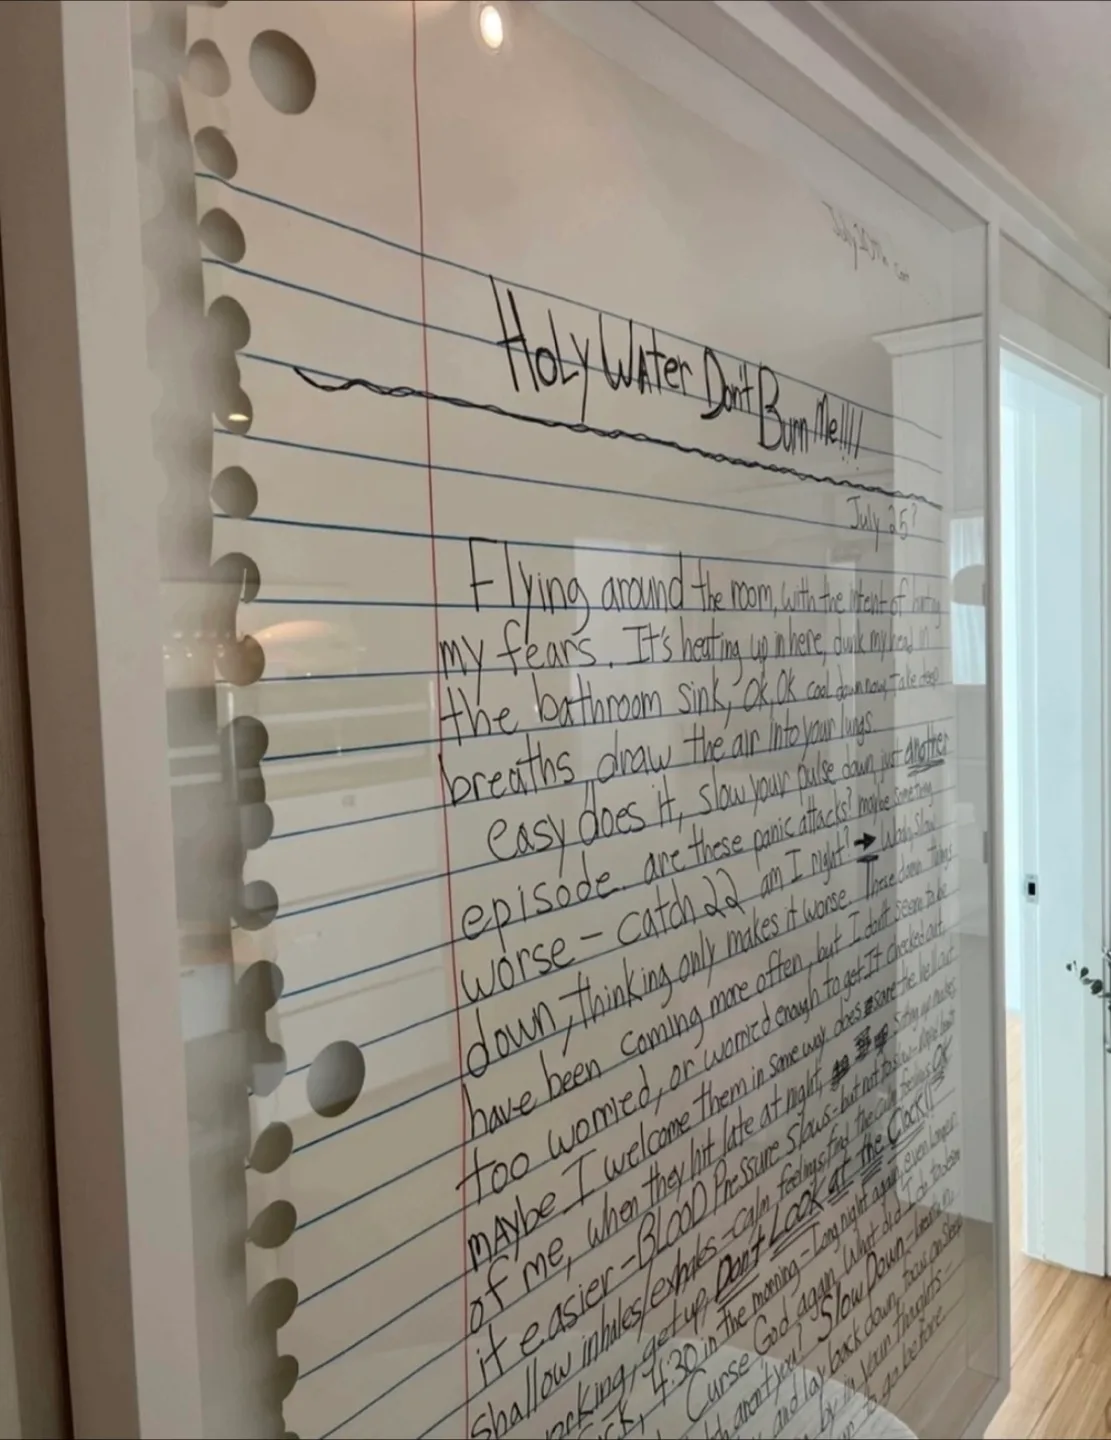 Holy Water Don't Burn Me!!!!
July 25?
Flying around the room, with the intent of hurting
my fears. It's heating up in here, dunk my head in
the bathroom sink, OK, OK cool down now, Take deep
breaths, draw the air into your lungs.
easy does it, slow your pulse down, just another
episode. are these panic attacks? maybe something
worse - catch 22 am I right? → Woah, Slow
down, thinking only makes it worse. These damn things
have been coming more often, but I don't seem to be
too worried, or worried enough to get It checked out.
mAybe I welcome them in some way. does scare the hell out
of me, when they hit late at night, sitting up makes
it easier - BLOOD Pressure slows - but not to slow -
shallow inhales/exhales - calm feelings, find the calm feelings OK
working, get up, Don't Look at the Clock!!
4:30 in the morning - Long night again, even longer
Curse God again, What did I do to
aren't you? Slow Down - breath in
and lay back down, focus on Sleep
by in your thoughts -
to go before